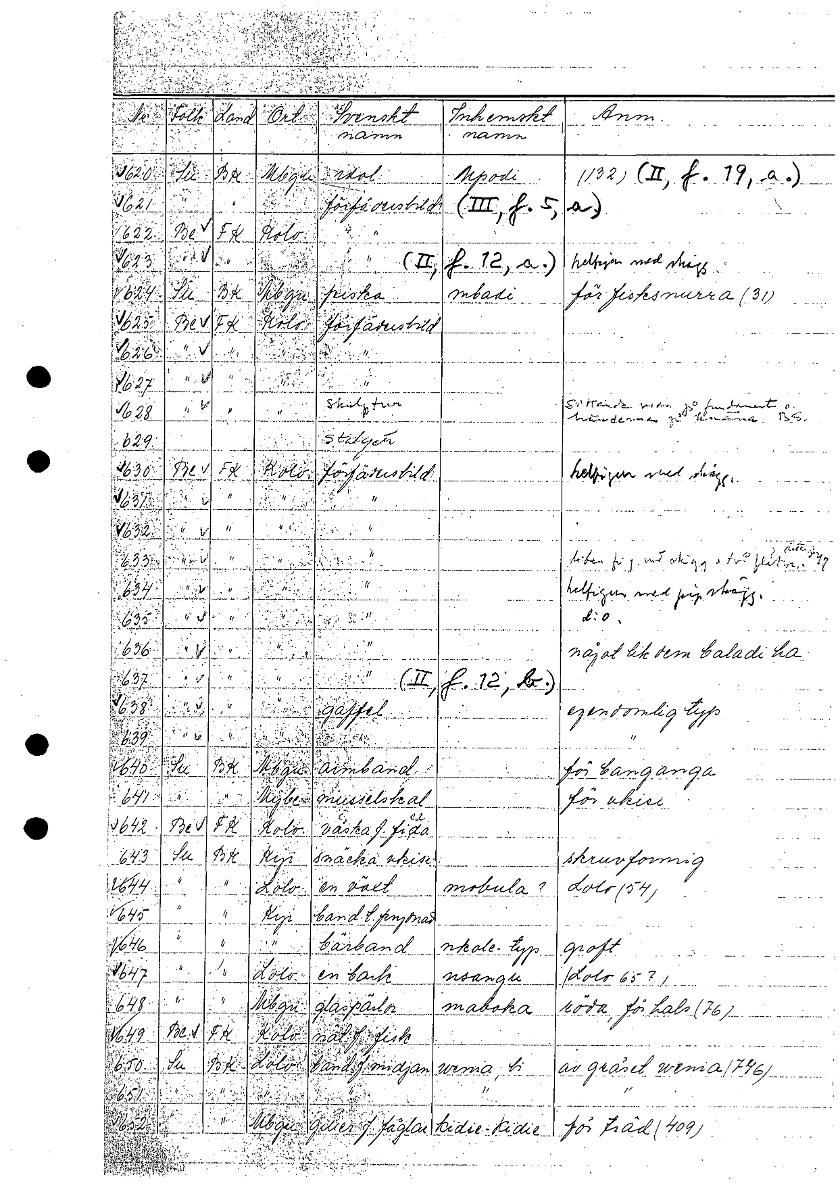 Nr Folk Land Ort Svenskt namn Inhemskt namn Anm.
√620 Su BK Mbgu idol Mpodi (132) (II, f. 19, a.)
√621 " " " förfädersbild (III, f. 5, a)
√622 Be√ FK Kolo " "
√623 " √ " " " (II, f. 12, a.) helfigur med skägg
√624 Su BK Mbgu piska mbadi för fisksnurra (31)
√625 Be√ FK Kolo förfädersbild
√626 " √ " " "
√627 " √ " " "
√628 " √ " " skulptur sittande man på fundament o.
händerna på knäna BS.
629
√630 Be√ FK Kolo förfädersbild helfigur med skägg.
√631 " √ " " "
√632 " √ " " "
633 " √ " " " liten fig. med skägg o två
634 " √ " " " helfigur med pipskägg.
635 " √ " " " d:o.
636 " √ " " " något lik dem baladi ha
637 " √ " " " (II, f. 12, b.)
√638 " √ " " gaffel egendomlig typ
639 " √ " " "
√640 Su BK Mbgu armband för banganga
641 " " musselskal för nkisi
√642 Be√ FK Kolo väska f.
643 Su BK Kyi snäcka nkisi skruvformig
√644 " " Lolo en växt mobula? Lolo (54)
√645 " " Kyi band t. prydnad
√646 " " " bärband nkole-typ groft
√647 " " Lolo en bark nsangu (Lolo 65?)
648 " " Mbgu glaspärlor maboka röda, för hals (76)
√649 Be√ FK Kolo nät f. fisk
650 Su BK Lolo band f. midjan wenia, ti av gräset wenia (746)
651 " " " " " "
√652 " Mbgu giller f. fåglar kidie-kidie för träd (409)